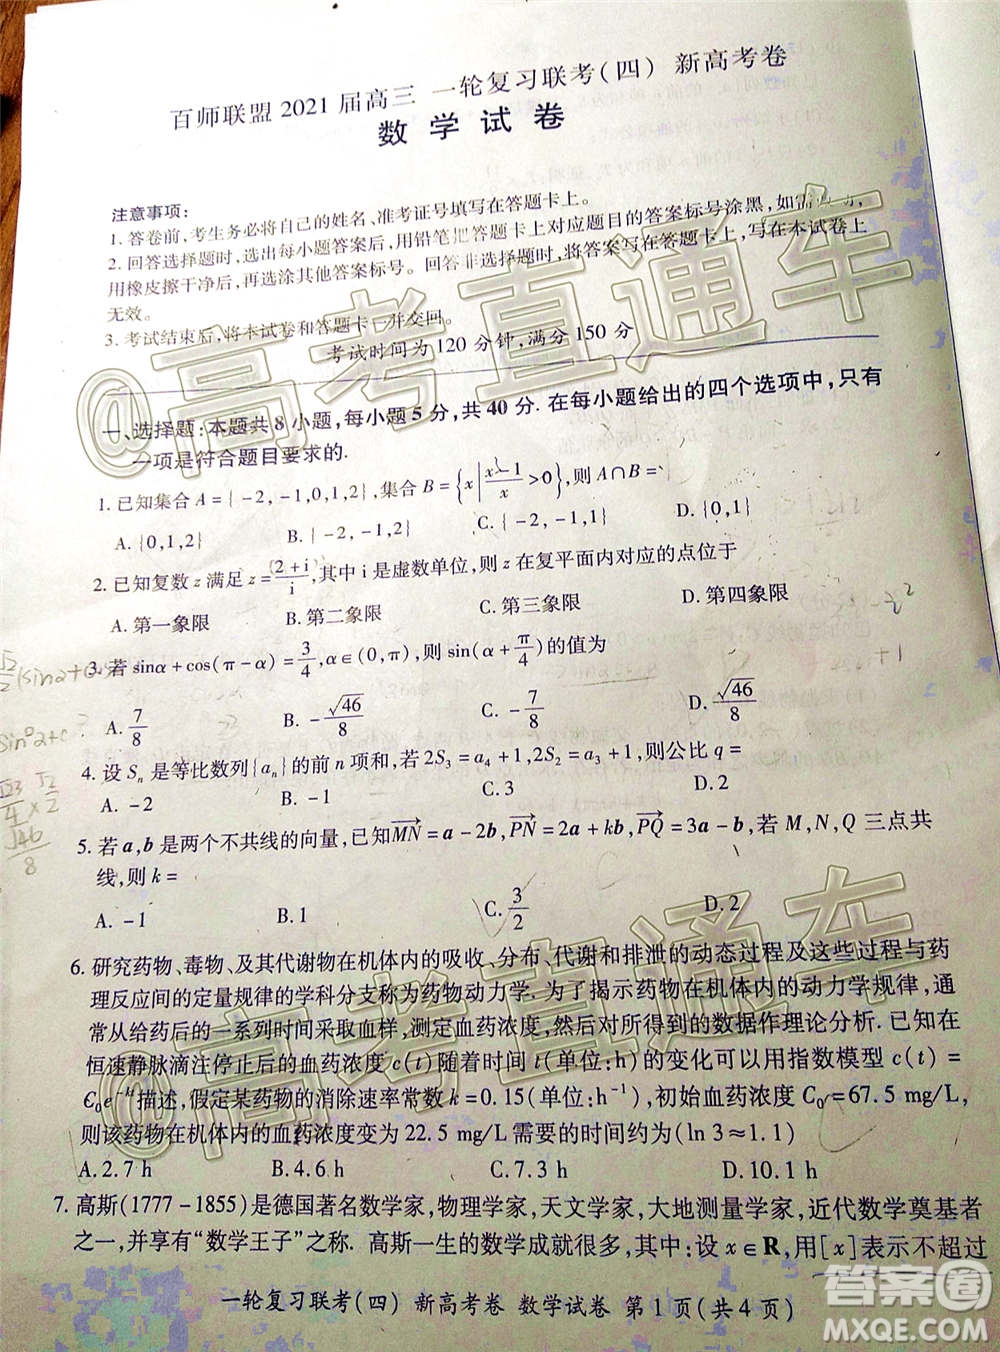 百师联盟 2021 届高三 一轮复习联考(四) 新高考卷
数 学 试 卷
注意事项:
1. 答卷前,考生务必将自己的姓名、准考证号填写在答题卡上。
2. 回答选择题时,选出每小题答案后,用铅笔把答题卡上对应题目的答案标号涂黑,如需改动,
用橡皮擦干净后,再选涂其他答案标号。回答非选择题时,将答案写在答题卡上,写在本试卷上
无效。
3. 考试结束后,将本试卷和答题卡一并交回。
考试时间为 120 分钟,满分 150 分
一、选择题:本题共 8 小题,每小题 5 分,共 40 分. 在每小题给出的四个选项中,只有
一项是符合题目要求的.
1. 已知集合 A={-2,-1,0,1,2},集合 B={x|(x-1)/x>0},则 A∩B=
A. {0,1,2} B. {-2,-1,2} C. {-2,-1} D. {0,1}
2. 已知复数 z 满足 z=(2+i)/i,其中 i 是虚数单位,则 z 在复平面内对应的点位于
A. 第一象限 B. 第二象限 C. 第三象限 D. 第四象限
3. 若 sinα+cos(π-α)=3/4,α∈(0,π),则 sin(α+π/4)的值为
A. 7/8 B. -√46/8 C. -7/8 D. √46/8
4. 设 Sn 是等比数列{an}的前 n 项和,若 2S3=a4+1,2S2=a3+1,则公比 q=
A. -2 B. -3 C. 3 D. 2
5. 若 a,b 是两个不共线的向量,已知MN=a-2b,PN=2a+kb,PQ=3a-b,若 M,N,Q 三点共
线,则 k=
A. -1 B. 1 C. 3/2 D. 2
6. 研究药物、毒物、及其代谢物在机体内的吸收、分布、代谢和排泄的动态过程及这些过程与药
理反应间的定量规律的学科分支称为药物动力学. 为了揭示药物在机体内的动力学规律,通
常从给药后的一系列时间采取血样,测定血药浓度,然后对所得到的数据作理论分析. 已知在
恒速静脉滴注停止后的血药浓度 c(t)随着时间 t(单位:h)的变化可以用指数模型 c(t)=
C0e^-kt描述,假定某药物的消除速率常数 k=0.15(单位:h^-1),初始血药浓度 C0=67.5 mg/L,
则该药物在机体内的血药浓度变为 22.5 mg/L 需要的时间约为(ln 3≈1.1)
A. 2.7 h B. 4.6 h C. 7.3 h D. 10.1 h
7. 高斯(1777-1855)是德国著名数学家,物理学家,天文学家,大地测量学家,近代数学奠基者
之一,并享有“数学王子”之称. 高斯一生的数学成就很多,其中:设 x∈R,用[x]表示不超过
一轮复习联考(四) 新高考卷 数学试卷 第 1 页(共 4 页)
@高考直通车
@高考直通车
答案圈
MXQE.COM